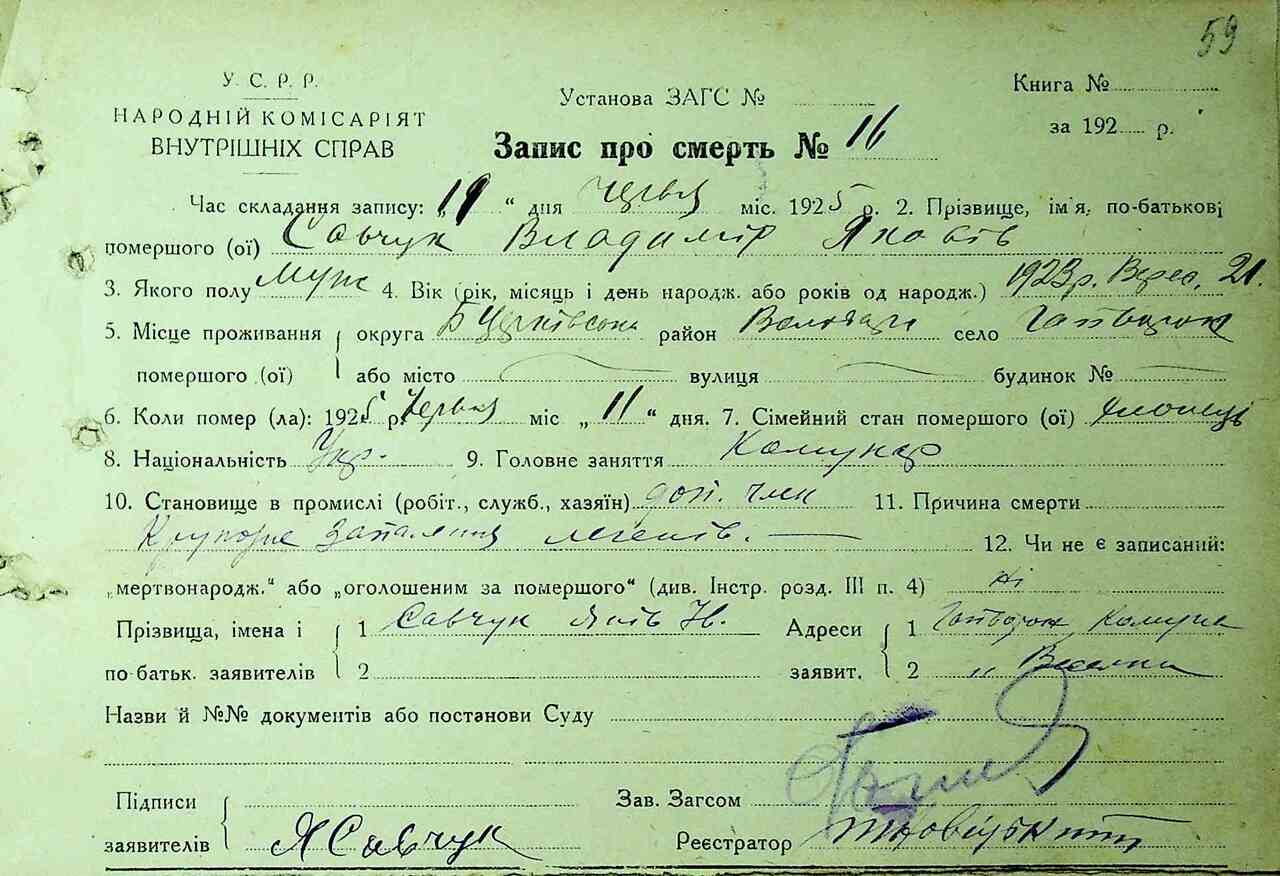 59
У. С. Р. Р.
НАРОДНІЙ КОМІСАРІЯТ
ВНУТРІШНІХ СПРАВ
Установа ЗАГС №
Запис про смерть № 16
Книга №
за 192 р.
Час складання запису: „19“ дня червня міс. 1925 р. 2. Прізвище, ім'я, по-батькові
помершого (ої) Савчук Владимір Яковів
3. Якого полу муж 4. Вік (рік, місяць і день народж. або років од народж.) 1923 р. Верес. 21.
5. Місце проживання округа район село
помершого (ої) або місто вулиця будинок №
6. Коли помер (ла): 1925 р. червня міс „11“ дня. 7. Сімейний стан помершого (ої)
8. Національність Укр. 9. Головне заняття Комунар
10. Становище в промислі (робіт., служб., хазяїн) доп. член 11. Причина смерти
Крупозне запалення легенів. 12. Чи не є записаний:
„мертвонародж.“ або „оголошеним за помершого“ (див. Інстр. розд. III п. 4) ні
Прізвища, імена і 1 Савчук Яків Ів. Адреси 1 Комуна
по-батьк. заявителів 2 заявит. 2 „
Назви й №№ документів або постанови Суду
Підписи Зав. Загсом
заявителів ЯСавчук Реєстратор